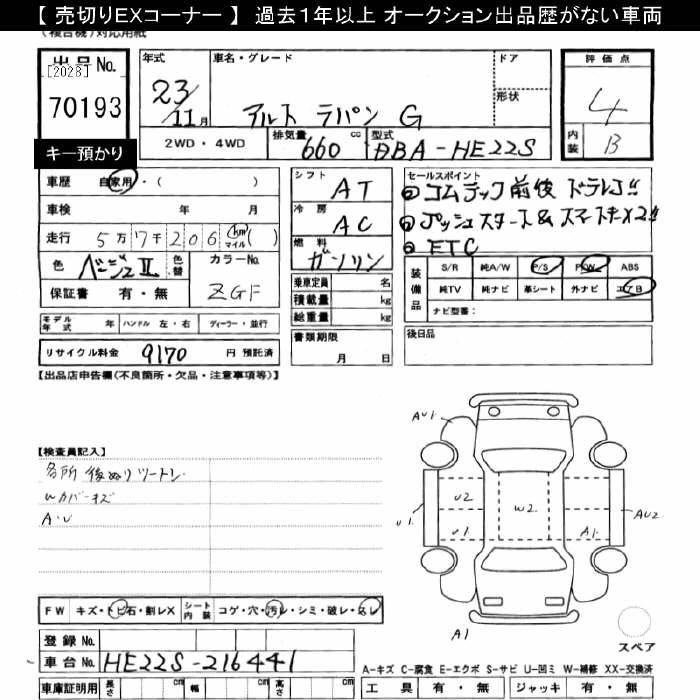 【 売切りEXコーナー 】 過去1年以上 オークション出品歴がない車両
(複合機)対応用紙
出品No. 年式 車名・グレード ドア 評価点
[2028]
70193 23/11月 アルト ラパン G 形状 4
2WD・4WD 排気量 660 cc 型式 DBA-HE22S 内装 B
キー預かり
車歴 自家用・( ) シフト AT セールスポイント
車検 年 月 冷房 AC ◎コムテック前後ドラレコ!!
走行 5万7千206 km マイル ( ) 燃料 ガソリン ◎プッシュスタート&スマートキーX2!!
◎ETC
色 ベージュII 色替 カラーNo. ZGF 乗車定員 名 装備品 S/R 純A/W P/S P/W ABS
保証書 有・無 積載量 kg 純TV 純ナビ 革シート 外ナビ エアB
総重量 kg ナビ型番:
モデル年式 年 ハンドル 左・右 ディーラー・並行 書類期限 月 日 後日品
リサイクル料金 9170 円 預託済
【出品店申告欄(不良箇所・欠品・注意事項等)】
【検査員記入】
各所 後ぬりツートン
Wカバーキズ
A・U
AU1
U2 W2
U1 U1 A1 AU2
A1
スペア
FW キズ・トビ石・割レX シート内装 コゲ・穴・汚レ・シミ・破レ・スレ
登録No.
車台No. HE22S-216441
A-キズ C-腐食 E-エクボ S-サビ U-凹ミ W-補修 XX-交換済
車庫証明用 長さ cm 幅 cm 高さ cm 工具 有・無 ジャッキ 有・無